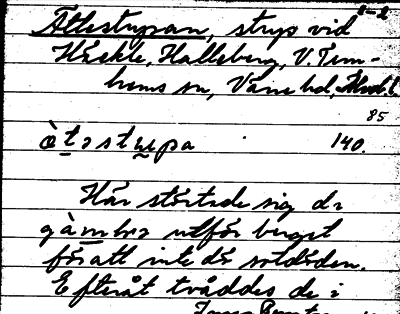 1-2
Ättestupan, stup vid
Häckle, Halleberg, V. Tun-
hems sn, Väne hd, Älvsb. l.
85
ä̀təstupa 140.
Här störtade sig de
gàmbɫa utför berget
för att inte dö sotdöden.
Efteråt tvåddes de i